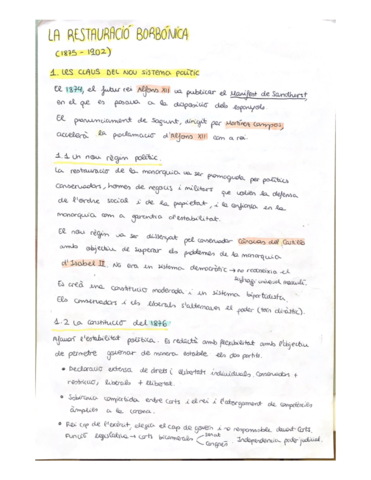 LA RESTAURACIÓ BORBÒNICA
(1875 - 1902)
1. LES CLAUS DEL NOU SISTEMA POLÍTIC
El 1874, el futur rei Alfons XII va publicar el Manifest de Sandhurst,
en el que es posava a la disposició dels espanyols.
El pronunciament de Sagunt, dirigit per Martínez Campos,
accelerà la proclamació d'Alfons XII com a rei.
1.1 Un nou règim polític.
La restauració de la monarquia va ser promoguda per polítics
conservadors, homes de negocis i militars que volien la defensa
de l'ordre social i de la propietat, i la confiança en la
monarquia com a garantia d'estabilitat.
El nou règim va ser dissenyat pel conservador Cánovas del Castillo
amb objectiu de superar els problemes de la monarquia
d'Isabel II. No era un sistema democràtic → no reconeixia el
sufragi universal masculí.
Es creà una constitució moderada i un sistema bipartidista,
Els conservadors i els liberals s'alternaven el poder (torn dinàstic).
1.2 La constitució del 1876
Afavorí l'estabilitat política. Es redactà amb flexibilitat amb l'objectiu
de permetre governar de manera estable els dos partits.
• Declaració extensa de drets i llibertats individuals. Conservadors +
restricció, liberals + llibertat.
• Sobirania compartida entre corts i el rei i l'atorgament de competències
àmplies a la corona.
• Rei cap de l'estat, elegia el cap de govern i no responsable davant Corts.
Funció legislativa → corts bicamerals Senat
Congrés Independència poder judicial.